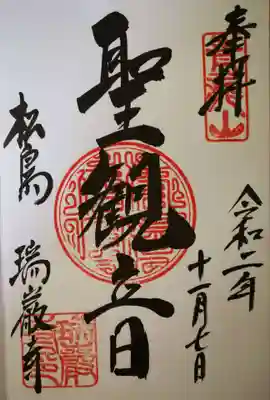 奉拝
令和二年
十一月七日
聖観音
松島 瑞巌寺